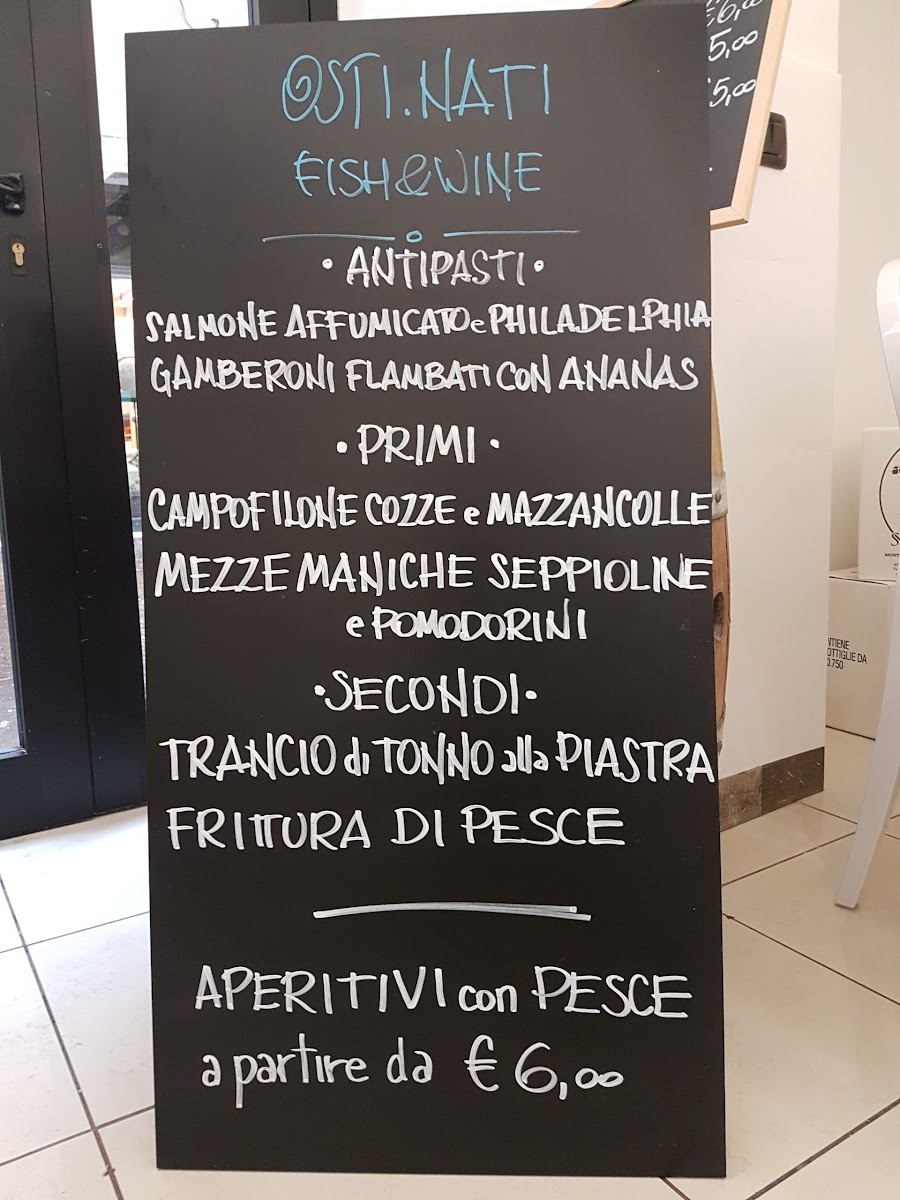 OSTI.NATI
FISH&WINE
• ANTIPASTI •
SALMONE AFFUMICATO e PHILADELPHIA
GAMBERONI FLAMBATI CON ANANAS
• PRIMI •
CAMPOFILONE COZZE e MAZZANCOLLE
MEZZE MANICHE SEPPIOLINE
e POMODORINI
• SECONDI •
TRANCIO di TONNO alla PIASTRA
FRITTURA DI PESCE
APERITIVI con PESCE
a partire da € 6,00
€6,00
5,00
5,00
OTTIGLIE DA
0.750